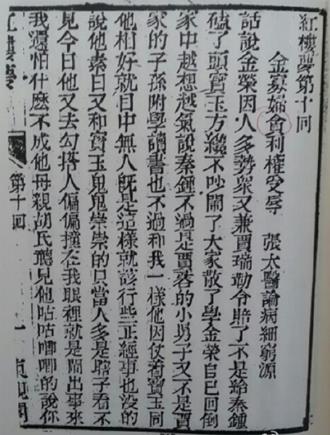 紅樓夢第十回
金寡婦會利權受辱 張太醫論病細窮源
話說金榮因人多勢衆又兼賈瑞勒令賠了不是給秦鍾
磕了頭寶玉方纔不吵鬧了大家散了學金榮自己回倒
家中越想越氣說秦鍾不過是賈蓉的小男子又不是賈
家的子孫附學讀書也不過和我一樣他因仗着寶玉同
他相好就目中無人既是這樣就該行些正經事也沒的
說他素日又和寶玉鬼鬼祟祟的只當人多是瞎子看不
見今日他又去勾搭人偏偏撞在我眼裡就是鬧出事來
我還怕什麼不成他母親胡氏聽見他咕咕唧唧的說你
紅樓夢 第十回 一